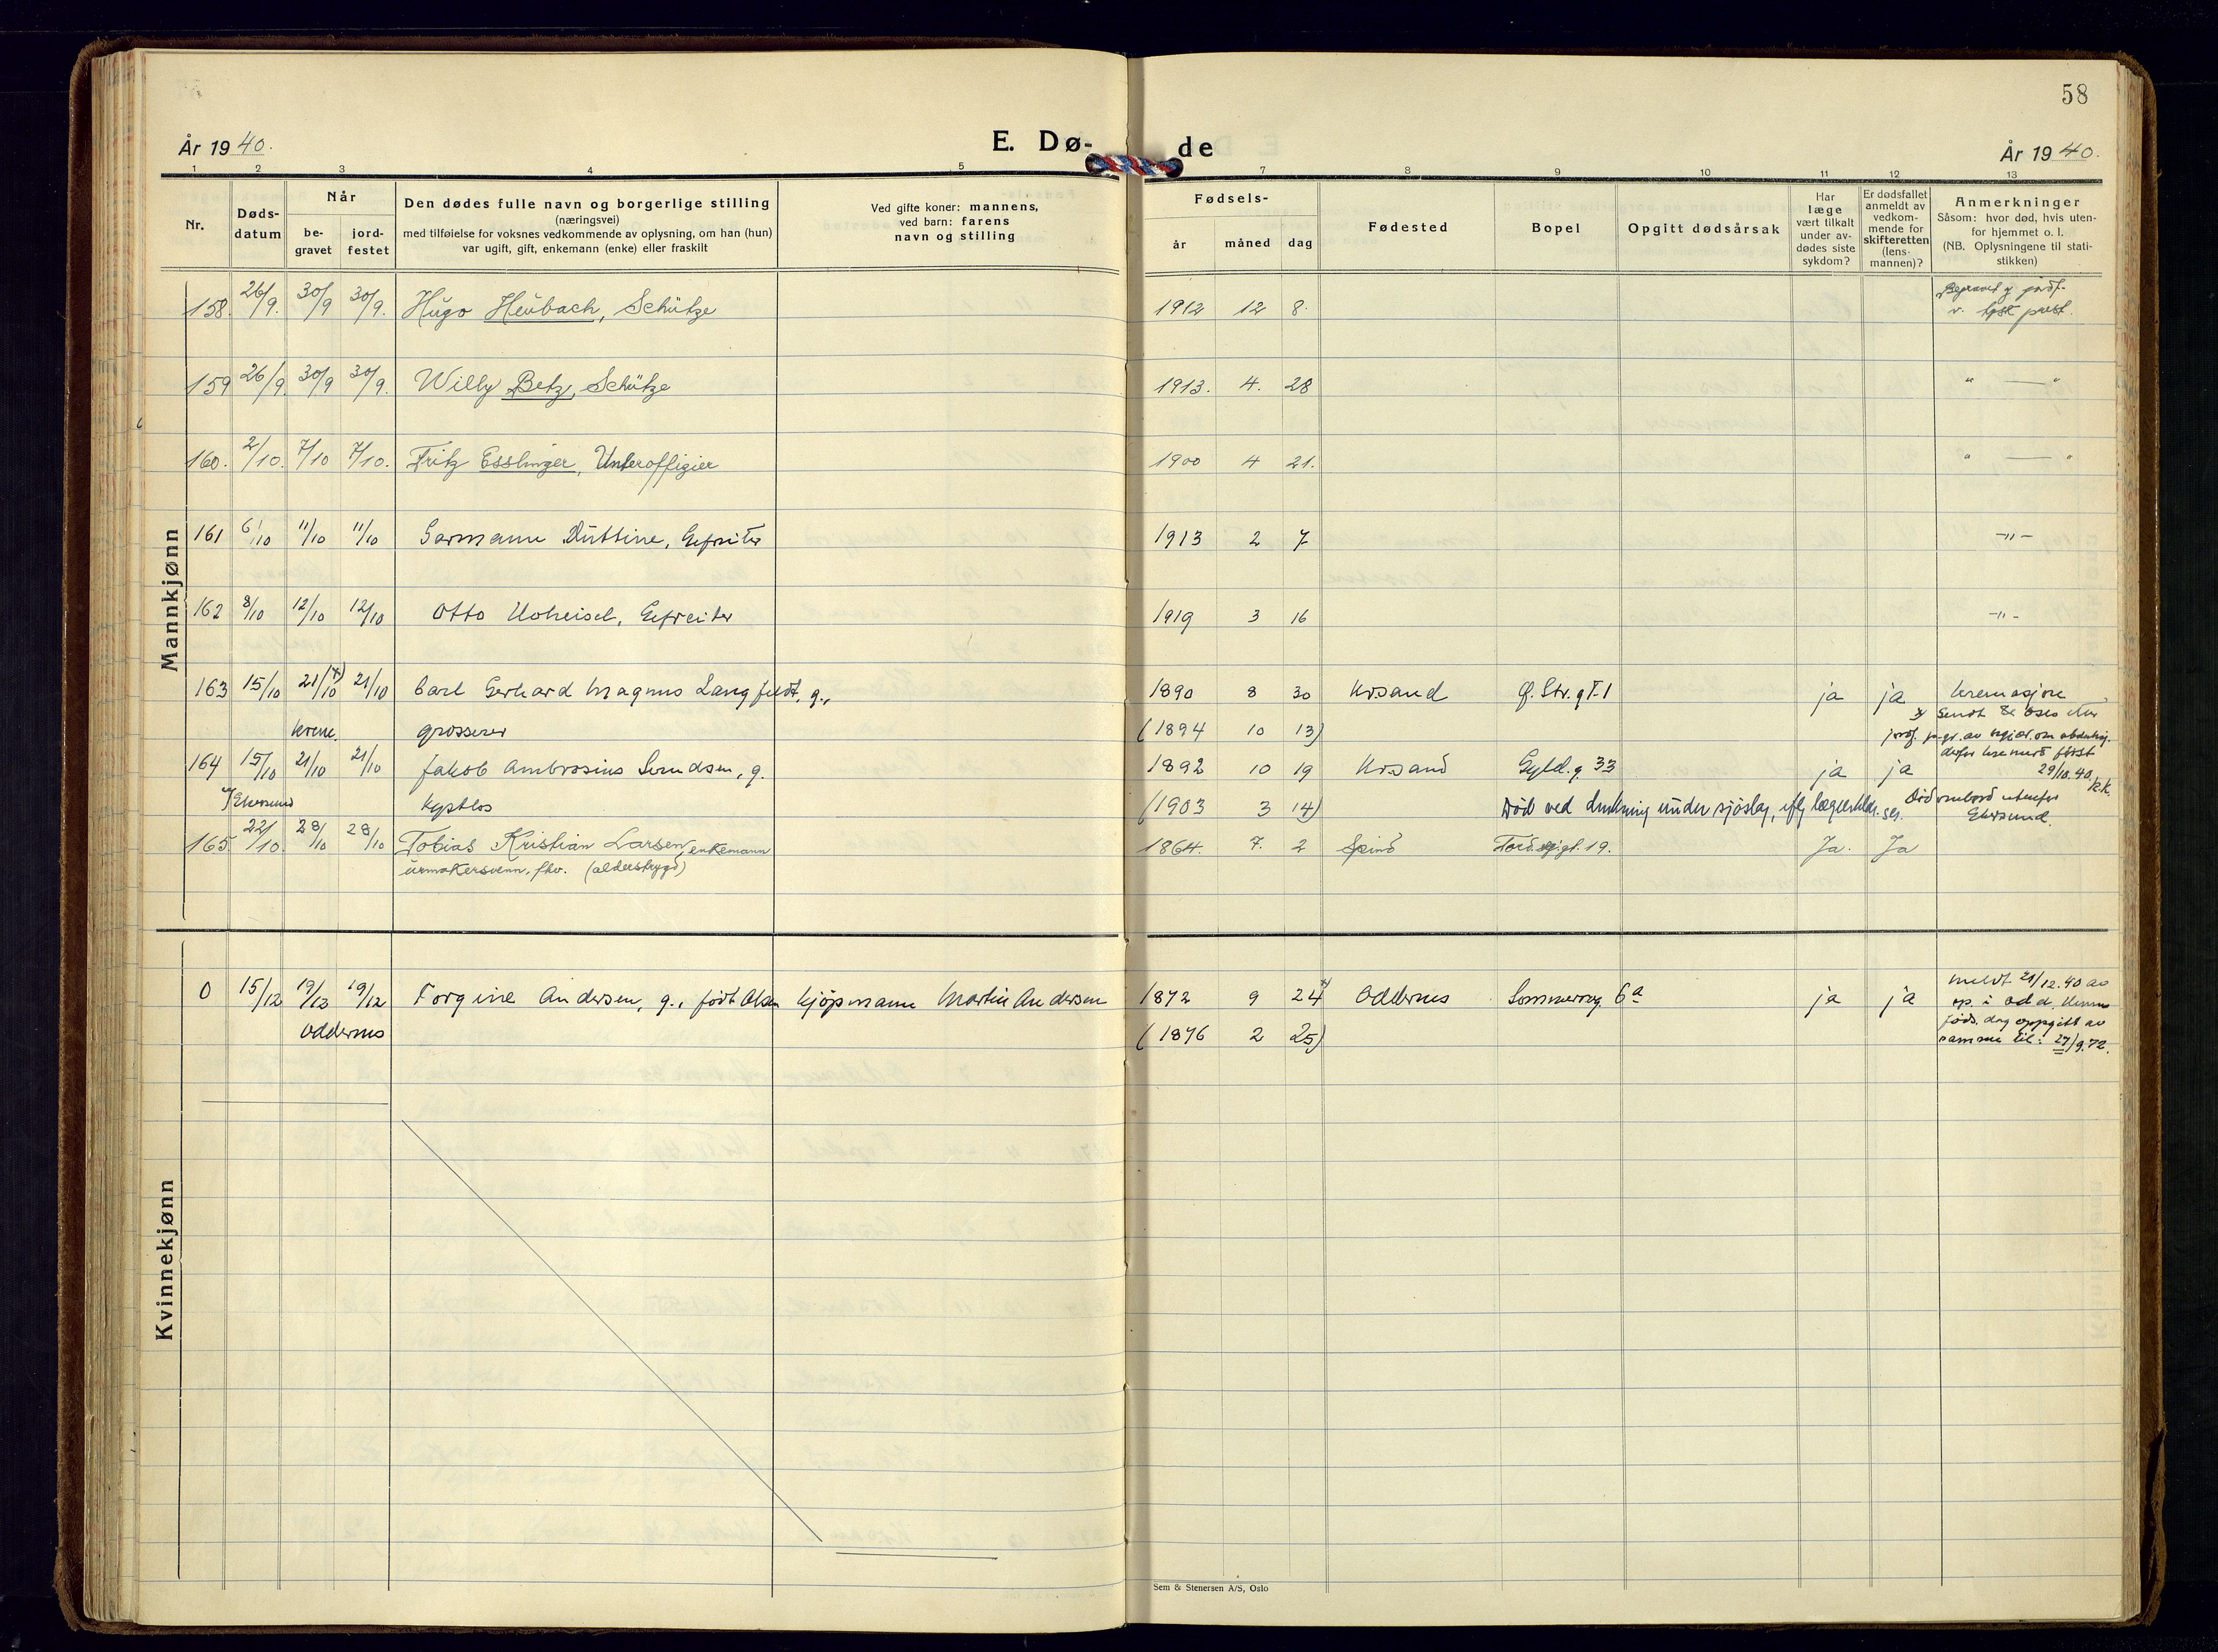 58
År 1940.
E. Dø-
de
År 1940.
1 2 3 4 5 7 8 9 10 11 12 13
Nr.
Døds-
datum
Når
be-
gravet
jord-
festet
Den dødes fulle navn og borgerlige stilling
(næringsvei)
med tilføielse for voksnes vedkommende av oplysning, om han (hun)
var ugift, gift, enkemann (enke) eller fraskilt
Ved gifte koner: mannens,
ved barn: farens
navn og stilling
Fødsels-
år måned dag
Fødested
Bopel
Opgitt dødsårsak
Har
læge
vært tilkalt
under av-
dødes siste
sykdom?
Er dødsfallet
anmeldt av
vedkom-
mende for
skifteretten
(lens-
mannen)?
Anmerkninger
Såsom: hvor død, hvis uten-
for hjemmet o. l.
(NB. Oplysningene til stati-
stikken)
Mannkjønn
158. 26/9. 30/9 30/9. Hugo Heubach, Schütze 1912 12 8. Begravet g jordf.
v. tysk prest.
159 26/9. 30/9 30/9. Willy Betz, Schütze 1913. 4. 28 " — "
160. 2/10. 7/10 7/10. Fritz Esslinger, Unteroffizier 1900 4 21. " — "
161 6/10 11/10 11/10 Düttine, Gefreiter 1913 2 7 -"-
162 8/10 12/10 12/10 Otto Hoheisel, Gefreiter 1919 3 16 -"-
163 15/10 21/10 x) 21/10 Carl Gerhard Magnus Langfeldt, g., 1890 8 30 Krsand Str. gt. 1 ja ja kremasjon
krem. grosserer (1894 10 13) x) Sendt
164 15/10 21/10 21/10 Jakob Ambrosius Svendsen, g. 1892 10 19 Krsand Gyld. g. 33 ja ja 29/10.40. k.k.
Ekersund kystlos (1903 3 14) Död ved drukning under sjöslag, iflg lægeerklær. Död ombord utenfor
Ekersund.
165. 22/10. 28/10 28/10 Tobias Kristian Larsen, enkemann 1864. 7. 2 Spind gt. 19. Ja. Ja
urmakersvenn, fhv. (alderstrygd)
Kvinnekjønn
0 15/12 19/12 19/12 Torgine Andersen, g., født Olsen kjöpmann Martin Andersen 1872 9 24 x) Oddernes Sommerog 6a ja ja meldt 21/12.40 av
sp. i Odd. Hennes
Oddernes (1876 2 25) föds. dag oppgitt av
samme til: 27/9.72.
Sem & Stenersen A/S, Oslo